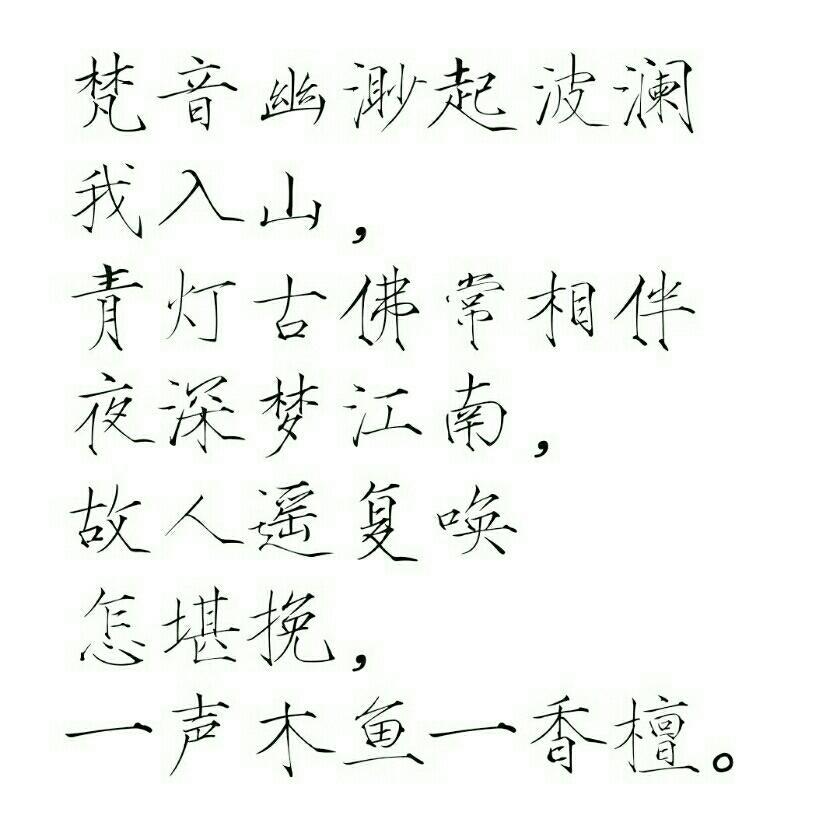 梵音幽渺起波澜
我入山，
青灯古佛常相伴
夜深梦江南，
故人遥复唤
怎堪挽，
一声木鱼一香檀。